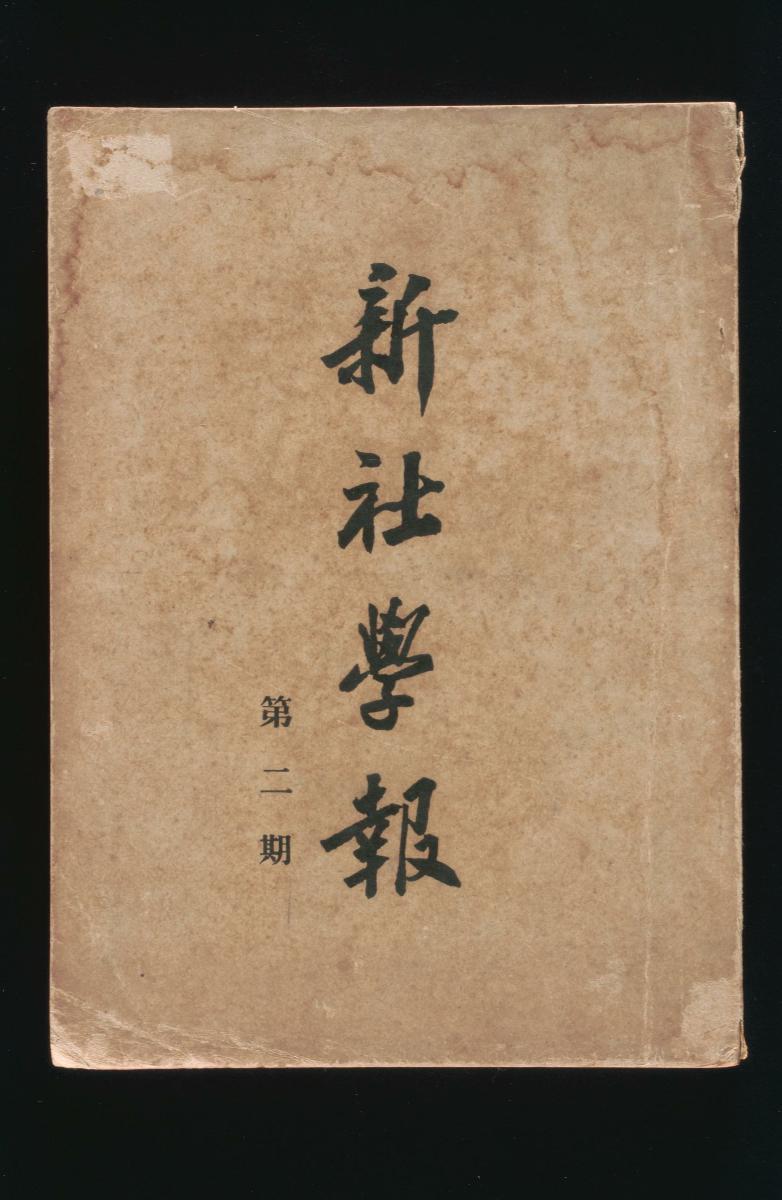 新社學報
第二期